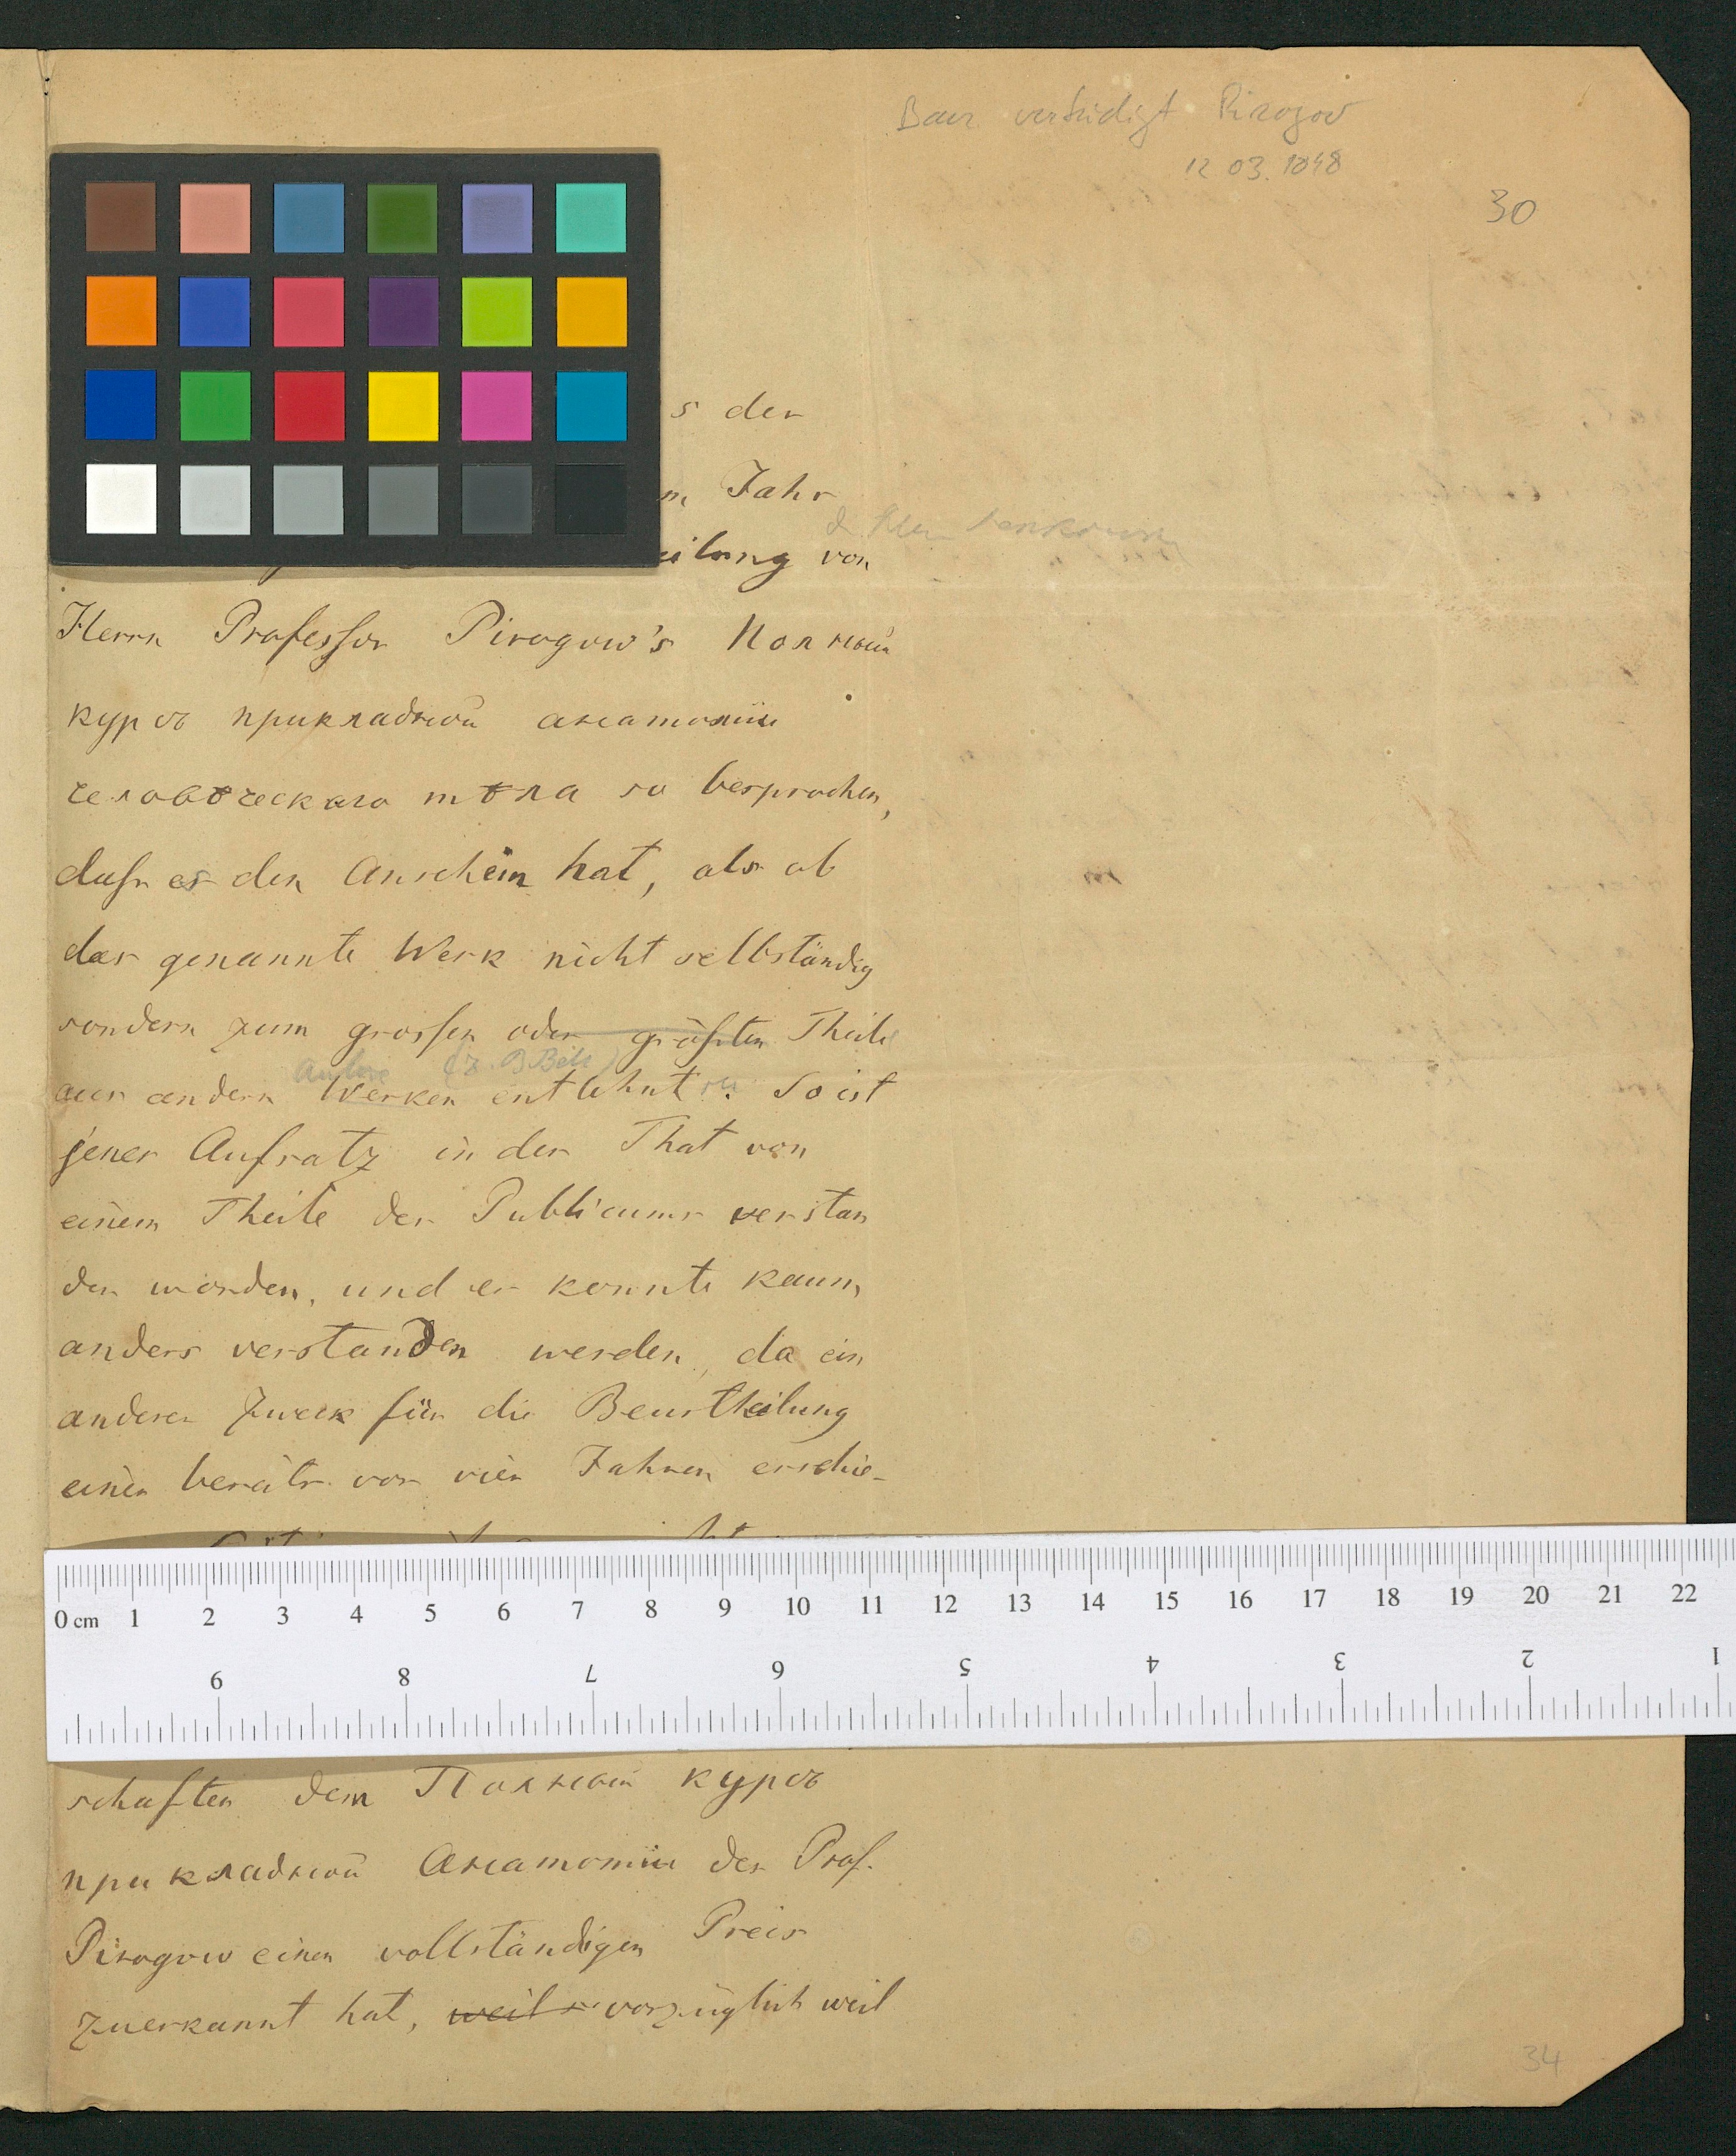 Baer verteidigt Pirogov
12 03. 1848
30
s der
m Jahr
eilung von
Herrn Professor Pirogow's Полный
курсъ прикладной анатоміи
человѣческаго тѣла so besprochen,
dass es den Anschein hat, als ob
das genannte Werk nicht selbständig
sondern zum grossen oder größten Theile
Autore (z. B. Bell)
aus andern Werken entlehnt sei. So ist
jener Aufsatz in der That von
einem Theile des Publicums verstan
den worden, und er konnte kaum
anders verstanden werden, da ein
anderer Zweck für die Beurtheilung
einer bereits vor vier Jahren erschie-
0 cm 1 2 3 4 5 6 7 8 9 10 11 12 13 14 15 16 17 18 19 20 21 22
9 8 7 6 5 4 3 2 1
schaften dem Полный курсъ
прикладной Анатоміи des Prof.
Pirogow einen vollständigen Preis
zuerkannt hat, weil vorzüglich weil
34